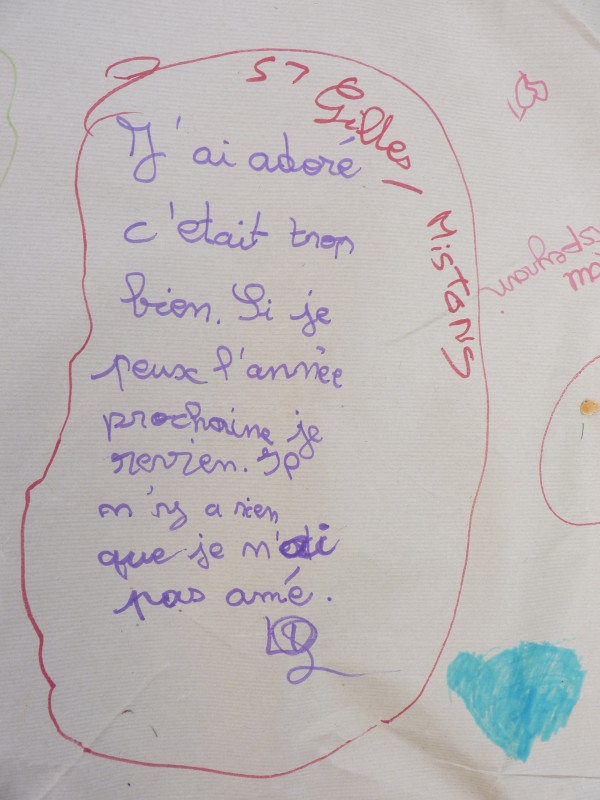 ST Gilles / Mistans
J'ai adoré
c'était trop
bien. Si je
peux l'année
prochaine je
revien. Il
n'y a rien
que je n'ai
pas amé.